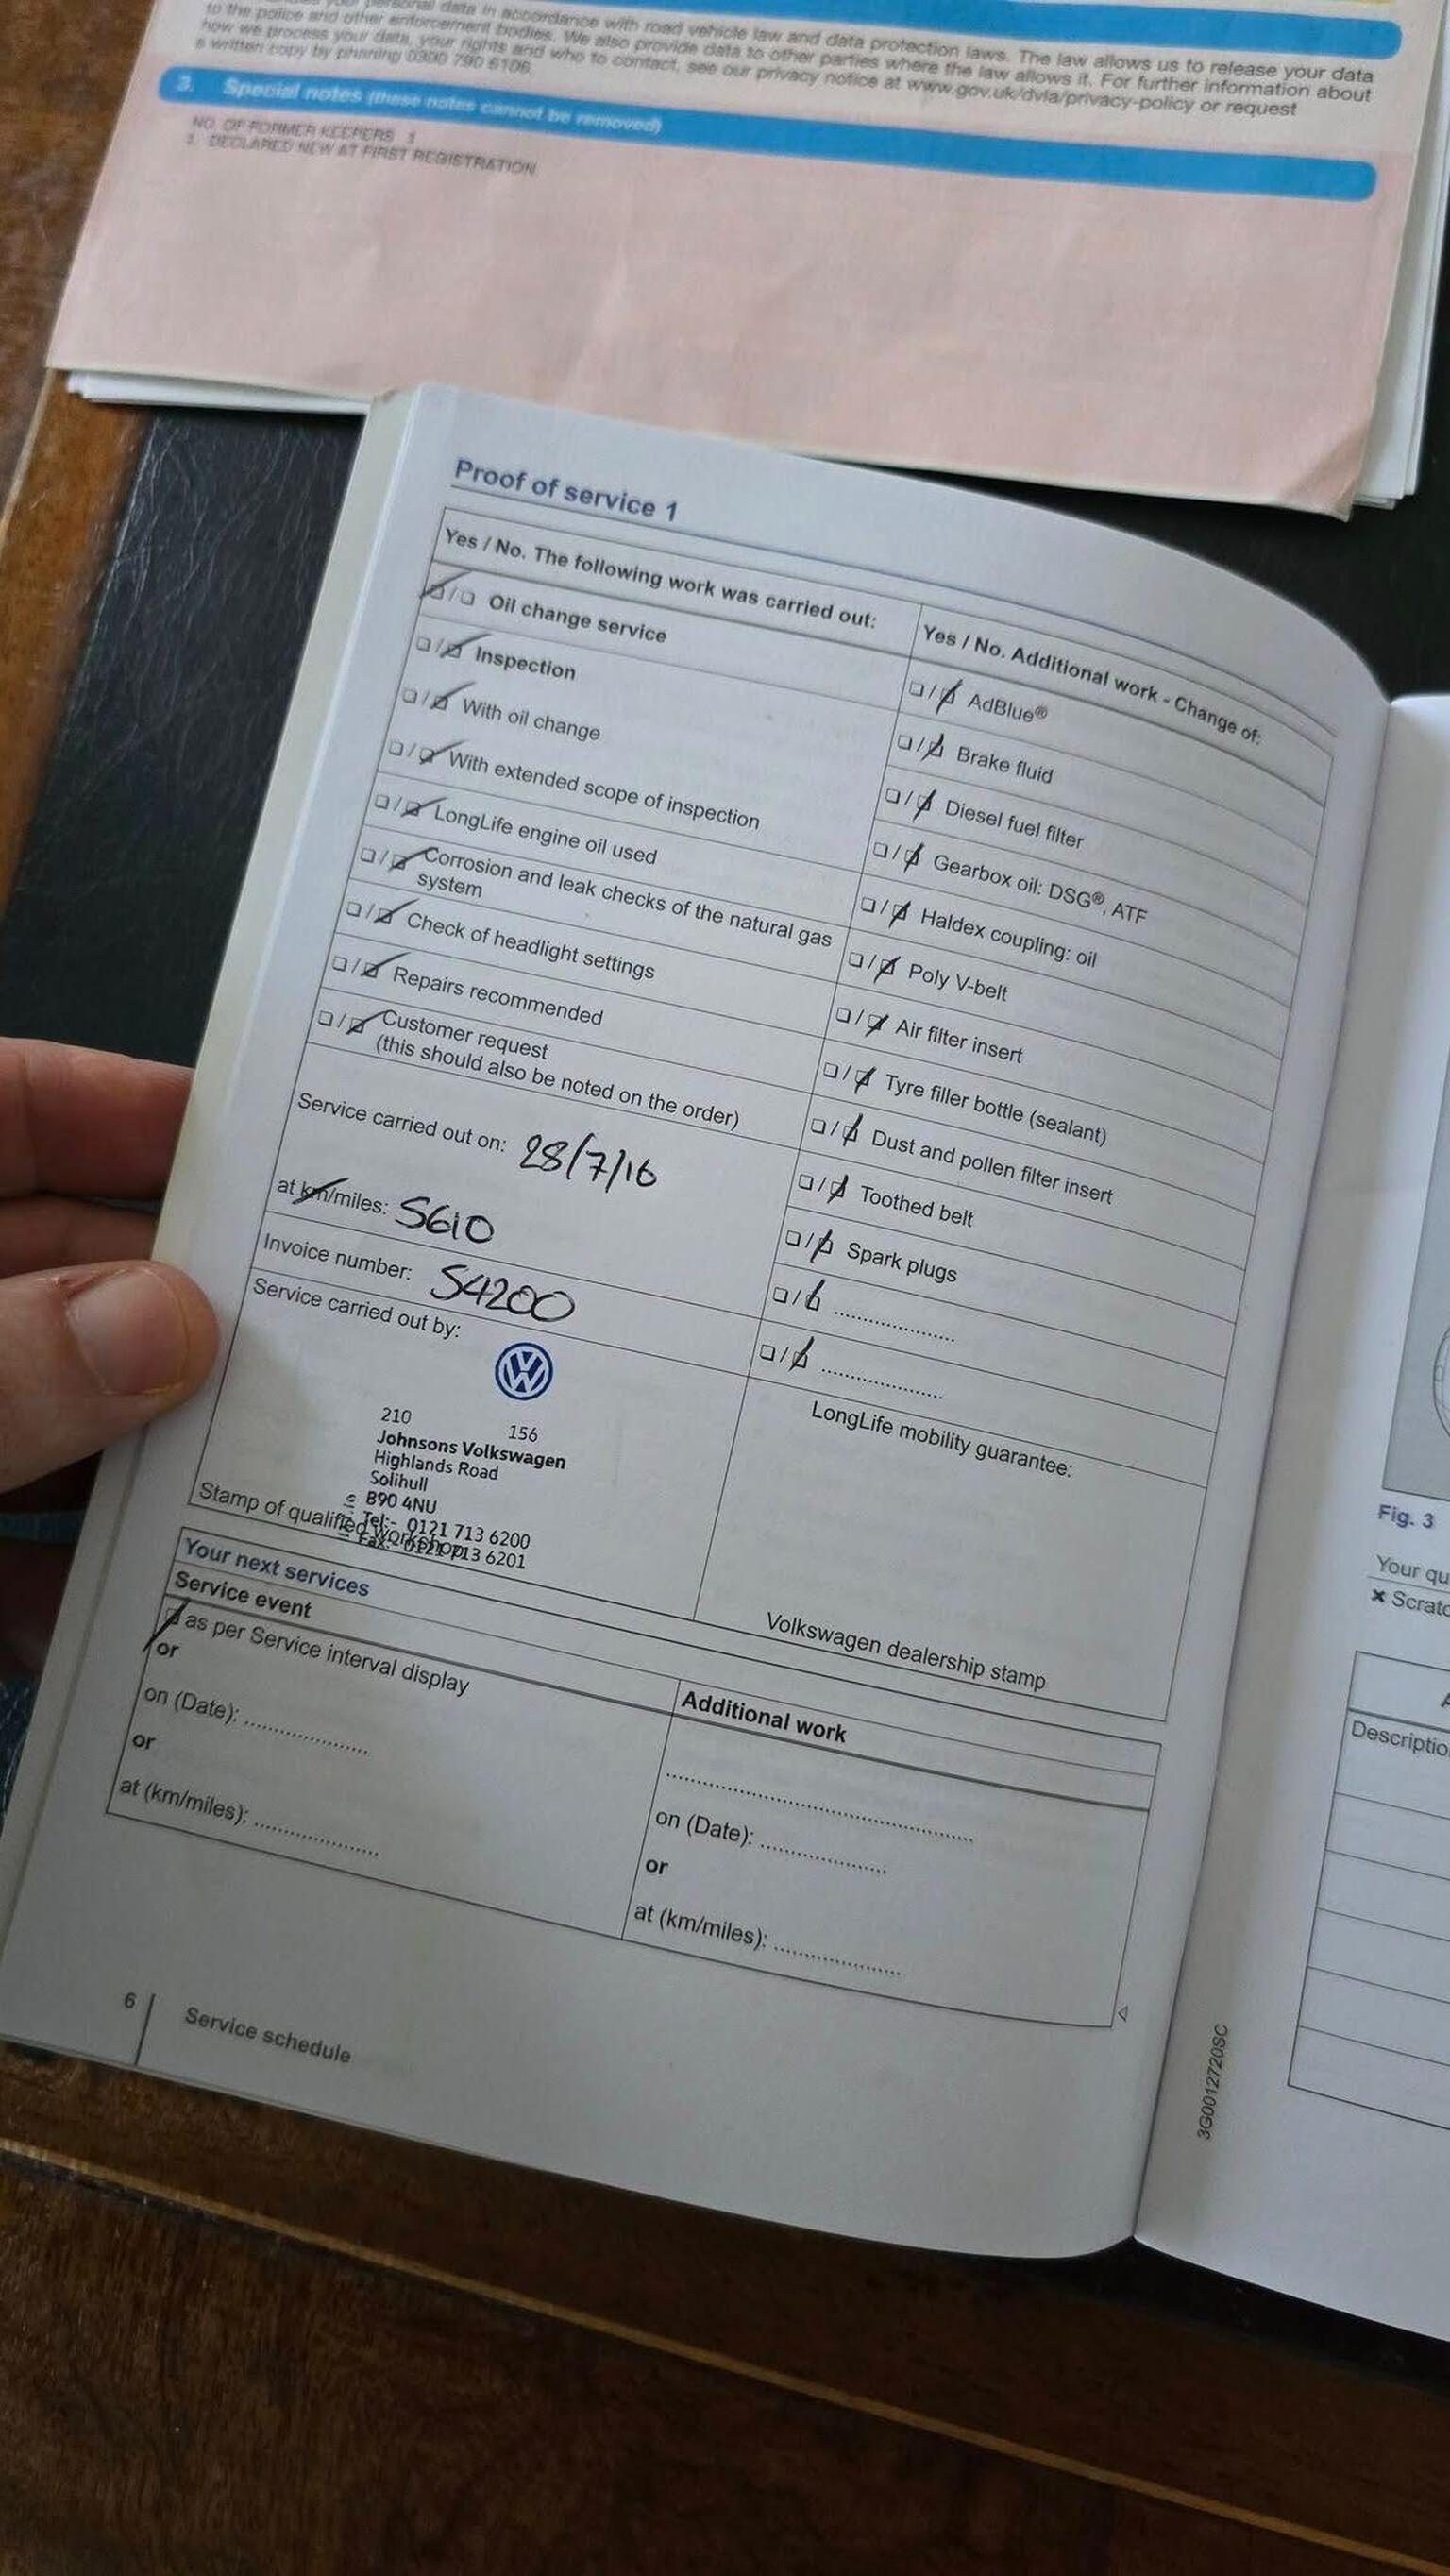 your personal data in accordance with road vehicle law and data protection laws. The law allows us to release your data
to the police and other enforcement bodies. We also provide data to other parties where the law allows it. For further information about
how we process your data, your rights and who to contact, see our privacy notice at www.gov.uk/dvla/privacy-policy or request
a written copy by phoning 0300 790 6106.
3. Special notes (these notes cannot be removed)
NO. OF FORMER KEEPERS
DECLARED NEW AT FIRST REGISTRATION
Proof of service 1
Yes / No. The following work was carried out:
Oil change service
Inspection
With oil change
With extended scope of inspection
LongLife engine oil used
Corrosion and leak checks of the natural gas
system
Check of headlight settings
Repairs recommended
Customer request
(this should also be noted on the order)
Service carried out on: 28/7/16
at km/miles: 5610
Invoice number: 54200
Service carried out by:
210 156
Johnsons Volkswagen
Highlands Road
Solihull
B90 4NU
Tel:- 0121 713 6200
Fax:- 0121 713 6201
Stamp of qualified workshop
Yes / No. Additional work - Change of:
AdBlue®
Brake fluid
Diesel fuel filter
Gearbox oil: DSG®, ATF
Haldex coupling: oil
Poly V-belt
Air filter insert
Tyre filler bottle (sealant)
Dust and pollen filter insert
Toothed belt
Spark plugs
....................
....................
LongLife mobility guarantee:
Volkswagen dealership stamp
Your next services
Service event
as per Service interval display
or
on (Date): ....................
or
at (km/miles): ....................
Additional work
..................................................
on (Date): ....................
or
at (km/miles): ....................
6 Service schedule
3G0012720SC
Fig. 3
Your qu
× Scratc
Descriptio